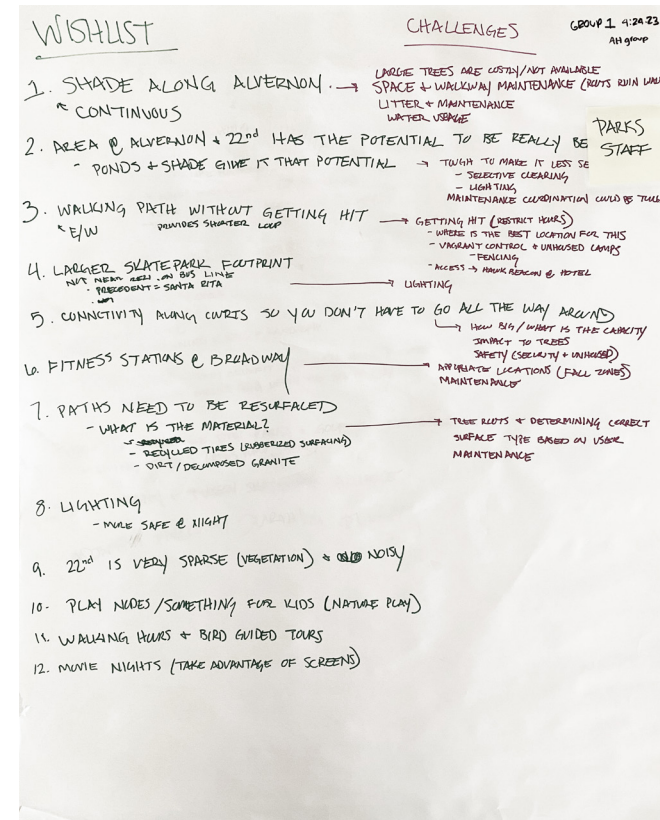 WISHLIST
CHALLENGES
GROUP 1 4:24.23
AH group
1. SHADE ALONG ALVERNON.
CONTINUOUS
LARGE TREES ARE COSTLY/NOT AVAILABLE
SPACE & WALKWAY MAINTENANCE (ROOTS RUIN
LITTER + MAINTENANCE
WATER USEAGE
2. AREA @ ALVERNON & 22nd HAS THE POTENTIAL TO BE REALLY BE
- PONDS & SHADE GIVE IS THAT POTENTIAL
PARKS
STAFF
TOUGH TO MAKE IT LESS SE
- SELECTIVE CLEARING
- LIGHTING
MAINTENANCE COORDINATION COULD BE
3. WALKING PATH WITHOUT GETTING HIT
E/W
PROVIDES SHORTER LOOP
GETTING HIT (RESTRICT HOURS)
- WHERE IS THE BEST LOCATION FOR THIS
- VAGRANT CONTROL & UNHOUSED CAMPS
- FENCING
- ACCESS → HAWK BEACON @ HOTEL
4. LARGER SKATEPARK FOOTPRINT
NOT NEAR ON BUS LINE
· PRECEDENT = SANTA RITA
LIGHTING
5. CONNCTIVITY ALONG COURTS SO YOU DON'T HAVE TO GO ALL THE WAY AROUND
HOW BIG/WHAT IS THE CAPACITY
IMPACT TO TREES
SAFETY (SECURITY & UNHOUSED)
6. FITNESS STATIONS @ BROADWAY
APPROPRIATE LOCATIONS (FALL ZONES)
MAINTENANCE
7. PATHS NEED TO BE RESURFACED
- WHAT IS THE MATERIAL?
- RECYCLED TIRES (RUBBERIZED SURFACING)
- DIRT/DECOMPOSED GRANITE
TREE ROOTS & DETERMINING CORRECT
SURFACE TYPE BASED ON USEAR
MAINTENANCE
8. LIGHTING
- MORE SAFE @ NIGHT
9. 22nd IS VERY SPARSE (VEGETATION) & NOISY
10. PLAY NODES/SOMETHING FOR KIDS (NATURE PLAY)
11. WALKING HOURS & BIRD GUIDED TOURS
12. MOVIE NIGHTS (TAKE ADVANTAGE OF SCREENS)